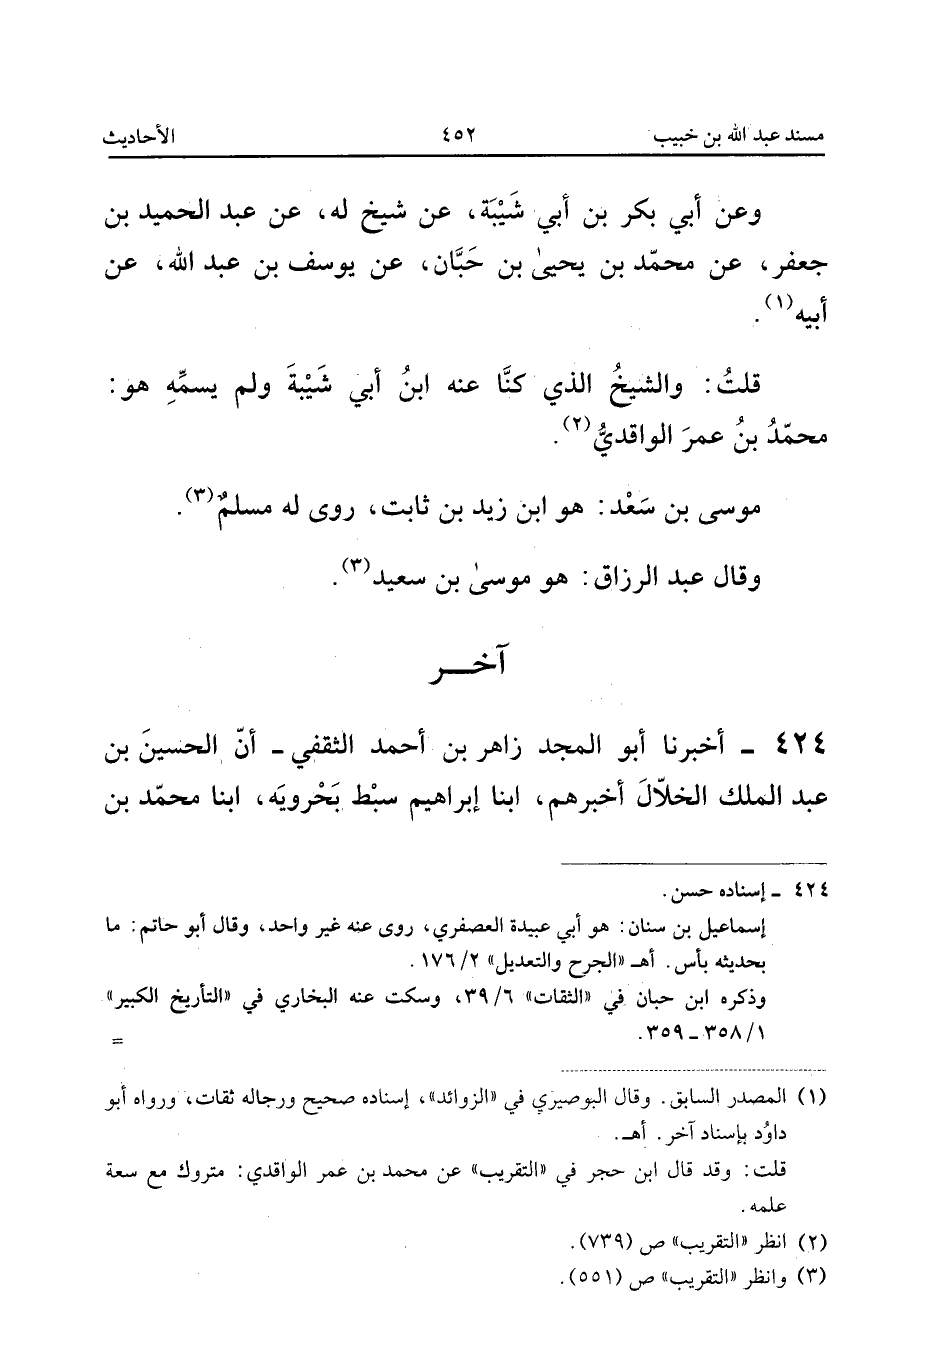 مسند عبد الله بن خبيب ٤٥٢ الأحاديث
وعن أبي بكر بن أبي شَيْبَة، عن شيخ له، عن عبد الحميد بن
جعفر، عن محمّد بن يحيىٰ بن حَبَّان، عن يوسف بن عبد الله، عن
أبيه(١).
قلتُ: والشيخُ الذي كنَّا عنه ابنُ أبي شَيْبةَ ولم يسمِّهِ هو:
محمّدُ بنُ عمرَ الواقديُّ(٢).
موسى بن سَعْد: هو ابن زيد بن ثابت، روى له مسلمٌ(٣).
وقال عبد الرزاق: هو موسىٰ بن سعيد(٣).
آخــر
٤٢٤ ـ أخبرنا أبو المجد زاهر بن أحمد الثقفي ـ أنّ الحسينَ بن
عبد الملك الخلاّلَ أخبرهم، ابنا إبراهيم سبْط بَحْرويَه، ابنا محمّد بن
٤٢٤ ـ إسناده حسن.
إسماعيل بن سنان: هو أبي عبيدة العصفري، روى عنه غير واحد، وقال أبو حاتم: ما
بحديثه بأس. أهـ «الجرح والتعديل» ١٧٦/٢.
وذكره ابن حبان في «الثقات» ٣٩/٦، وسكت عنه البخاري في «التأريخ الكبير»
٣٥٨/١ ـ ٣٥٩.
=
(١) المصدر السابق. وقال البوصيري في «الزوائد»، إسناده صحيح ورجاله ثقات، ورواه أبو
داوُد بإسناد آخر. أهـ.
قلت: وقد قال ابن حجر في «التقريب» عن محمد بن عمر الواقدي: متروك مع سعة
علمه.
(٢) انظر «التقريب» ص (٧٣٩).
(٣) وانظر «التقريب» ص (٥٥١).